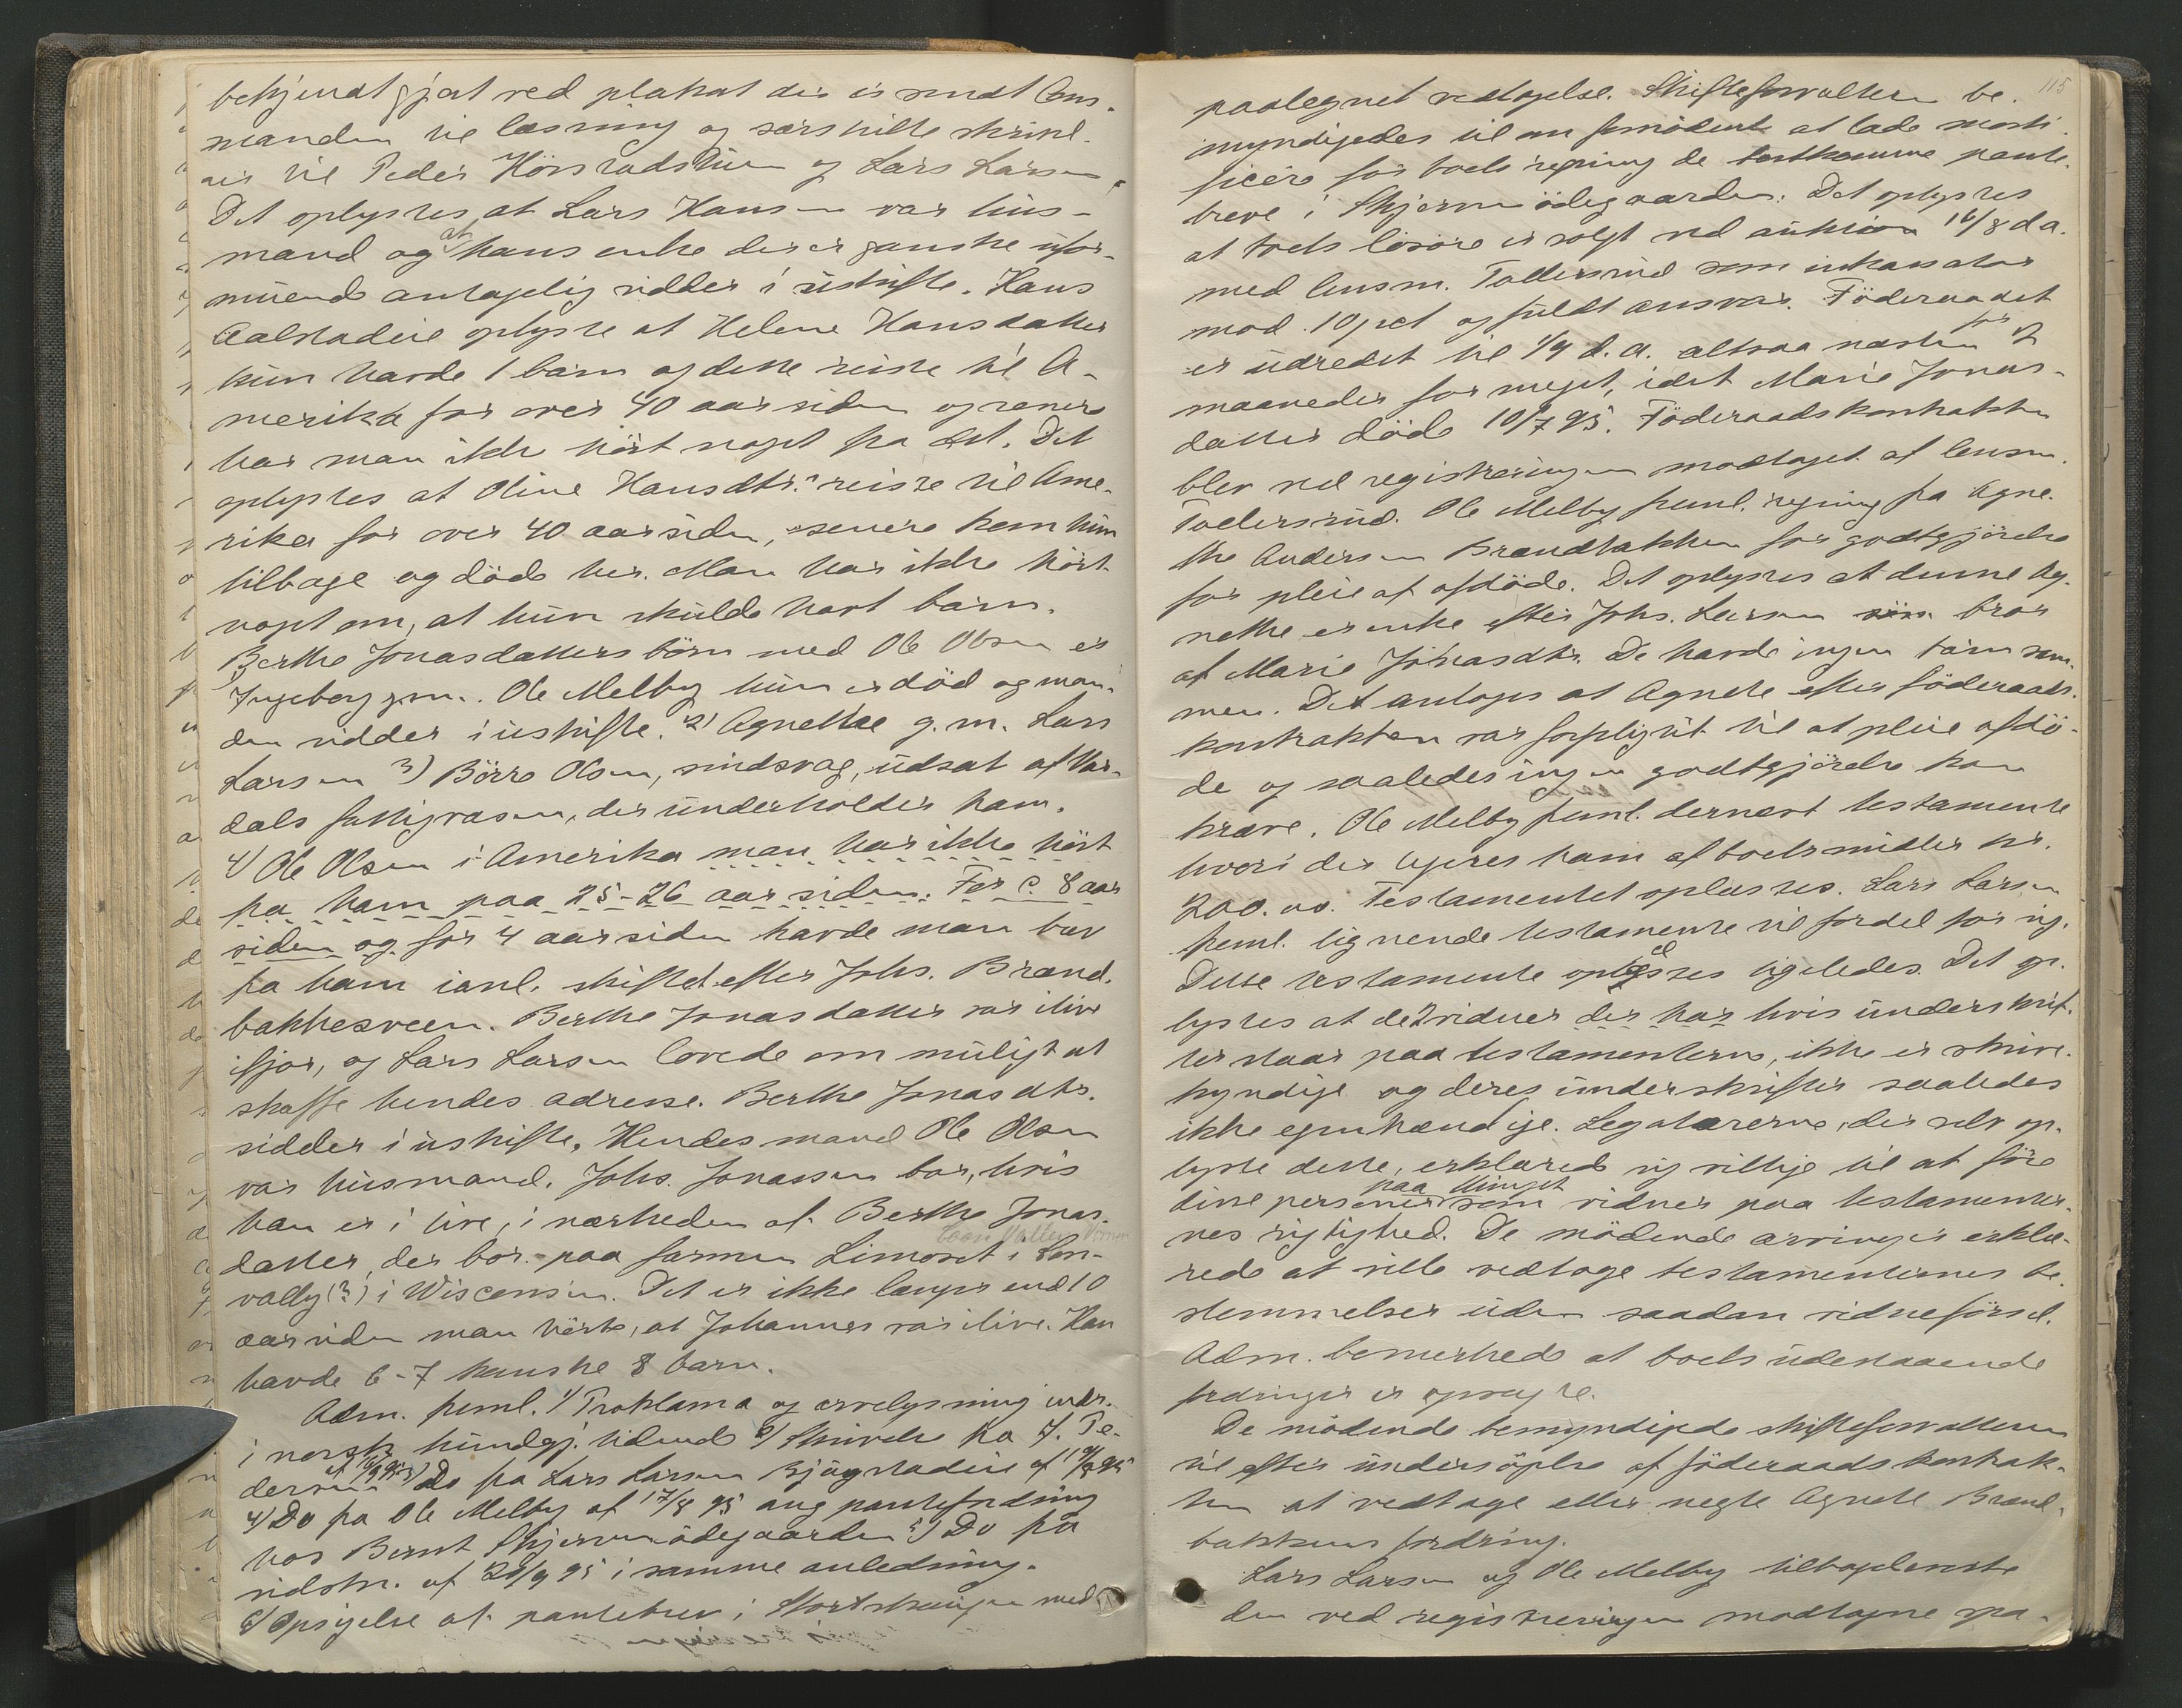 bekjendtgjort ved plakat der er sendt lens-
manden til læsning og særskilte skrivel-
ser til Peder Hörstadstuen og Lars Larsen.
Det oplystes, at Lars Hansen var hus-
mand og at hans enke der er ganske ufor-
muende antagelig sidder i uskifte. Hans
Aalstadeie oplyste at Helene Hansdatter
kun havde 1 barn og dette reiste til A-
merika for over 40 aar siden og senere
har man ikke hört noget fra det. Det
oplystes at Oline Hansdtr. reiste til Ame-
rika for over 40 aar siden, senere kom hun
tilbage og döde her. Man har ikke hört
noget om, at hun skulde havt barn.
Berthe Jonasdatters börn med Ole Olsen er
Ingeborg g.m. Ole Melby hun er död og man-
den sidder i uskifte. 2) Agnethe g.m. Lars
Larsen 3) Börre Olsen, sindsvag, udsat af Var-
dals fattigvæsen, der underholder ham.
4) Ole Olsen i Amerika man har ikke hört
fra ham paa 25-26 aar siden. For c. 8 aar
siden og for 4 aar siden havde man brev
fra ham ianl. skiftet efter Johs. Brænd-
bakkesveen. Berthe Jonasdatter var ilive
ifjor, og Lars Larsen lovede om muligt at
skaffe hendes adresse. Berthe Jonasdtr.
sidder i uskifte. Hendes mand Ole Olsen
var husmand. Johs. Jonassen bor, hvis
han er i live, i nærheden af Berthe Jonas-
Coon Valley
datter, der bor paa farmen Limoset i Con-
vally (?) i Wisconsin. Det er ikke længer end 10
aar siden man hörte, at Johannes var ilive. Han
havde 6-7 kanske 8 barn.
Adm. freml. 1) Proklama og arvelysning indr.
i norsk kundgj. tidende 2) Skrivelse fra J. Pe-
dersen af 6/9 95 3) Do fra Lars Larsen Bjugstadeie af
4) Do fra Ole Melby af 17/8 95 ang pantefordring
hos Bernt Skjerven ödegaarden 5) Do fra
sidstn. af 28/9 95 i samme anledning.
6) Opsigelse af pantebrev i med
115
paategnet vedtagelse. Skifteforvalteren be-
myndigedes til om fornödent at lade morti-
ficere for boets regning de bortkomne pante-
breve i Skjerven ödegaarden. Det oplystes
at boets lösöre er solgt ved auktion 16/8 d.a.
med lensm. Tollersrud som inkassator
mod 10 pct og fuldt ansvar. Föderaadet
er udredet til 1/9 d.a. altsaa næsten for 2
maaneder for meget, idet Marie Jonas-
datter döde 10/7 95. Föderaadskontrakten
blev ved registreringen modtaget af lensm.
Tollersrud. Ole Melby freml. regning fra Agne-
the Andersen Brændbakken for godtgjörelse
for pleie af afdöde. Det oplystes at denne Ag-
nethe er enke efter Johs. Larsen sön bror
af Marie Jonasdtr. De havde ingen barn sam-
men. Det antoges at Agnete efter föderaads-
kontrakten var forpligtet til at pleie afdö-
de og saaledes ingen godtgjörelse kan
kræve. Ole Melby freml. dernæst testamente
hvori der legeres ham af boets midler kr.
200.00. Testamentet oplæstes. Lars Larsen
freml. lignende testamente til fordel for sig.
Dette testamente oplæstes ligeledes. Det op-
lystes at de 2 vidner der har hvis underskrif-
ter staar paa testamenterne, ikke er skrive-
kyndige og deres underskrifter saaledes
ikke egenhændige. Legatarerne, der selv op-
lyste dette, erklærede sig villige til at före
paa tinget
disse personer som vidner paa testamenter-
nes rigtighed. De mödende arvinger erklæ-
rede at ville vedtage testamenternes be-
stemmelser uden saadan vidneförsel.
Adm. bemerkede at boets udestaaende
fordringer er opsagte.
De mödende bemyndigede skifteforvalteren
til efter undersögelse af föderaadskontrak-
ten at vedtage eller negte Agnete Brænd-
bakkens fordring.
Lars Larsen og Ole Melby tilbageleverte
den ved registreringen modtagne spa-